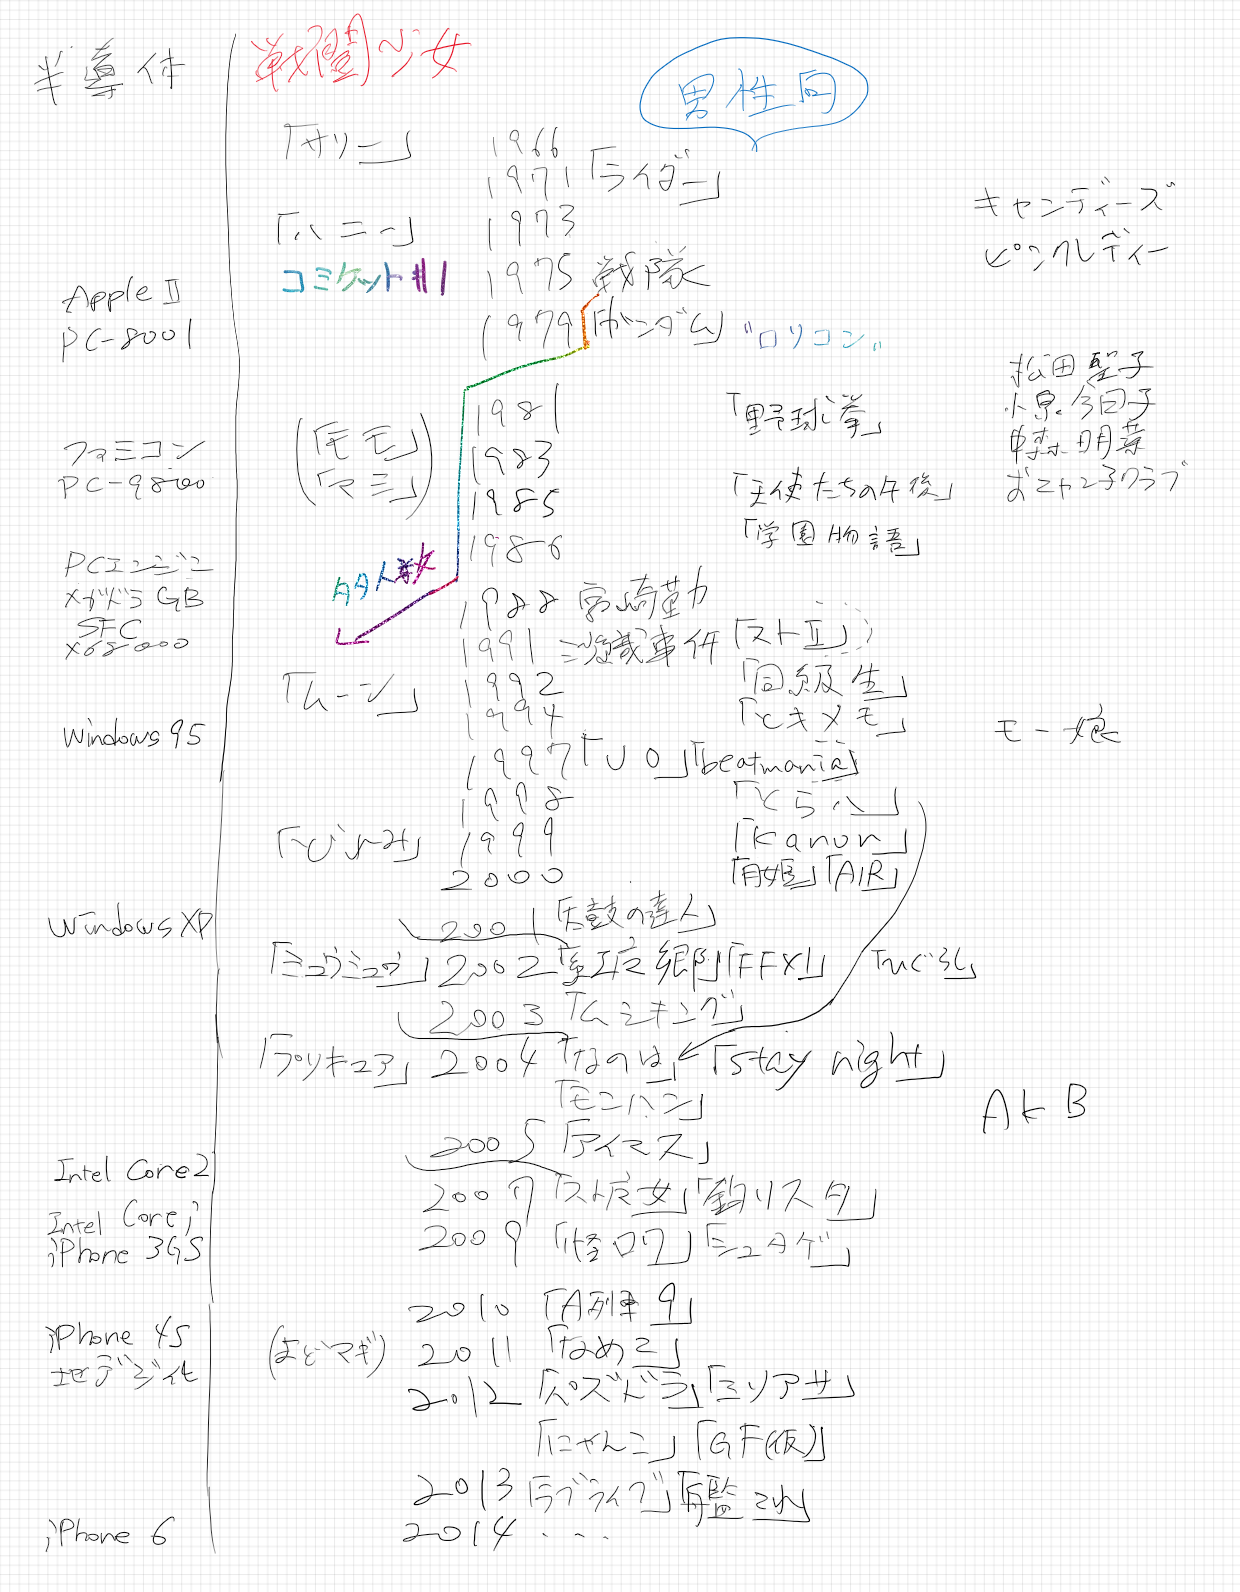 半導体 戦闘少女
男性向
「サリー」 1966
1971 「ライダー」
キャンディーズ
「ハニー」 1973
ピンクレディー
コミケット#1 1975 戦隊
Apple II
PC-8001 1979 「ガンダム」 "ロリコン"
松田聖子
1981 「野球拳」 小泉今日子
(「モモ」
ファミコン 「マミ」) 1983 中森明菜
PC-9800 1985 「天使たちの午後」 おニャン子クラブ
1986 「学園物語」
PCエンジン
メガドラ GB 多人数 1988 宮崎勤
SFC
X68000 1991 沙織事件 「ストII」
「ムーン」 1992 「同級生」
Windows 95 1994 「ときメモ」 モー娘
1997 「UO」「beatmania」
1998 「とらハ」
「ぴんみ」 1999 「Kanon」
2000 「月姫」「AIR」
Windows XP 2001 「太鼓の達人」
「ミュウミュウ」 2002 「紅魔郷」「FFXI」 「ひぐらし」
2003 「ムシキング」
「プリキュア」 2004 「なのは」 「stay night」
「モンハン」
AKB
2005 「アイマス」
Intel Core2
2007 「スト魔女」「釣りスタ」
Intel Core i
iPhone 3GS 2009 「怪ロワ」「シュタゲ」
2010 「A列車9」
iPhone 4S (まどマギ) 2011 「なめこ」
地デジ化
2012 「パズドラ」「ミリアサ」
「にゃんこ」「GF(仮)」
2013 「ラブライブ」「艦これ」
iPhone 6 2014 ...